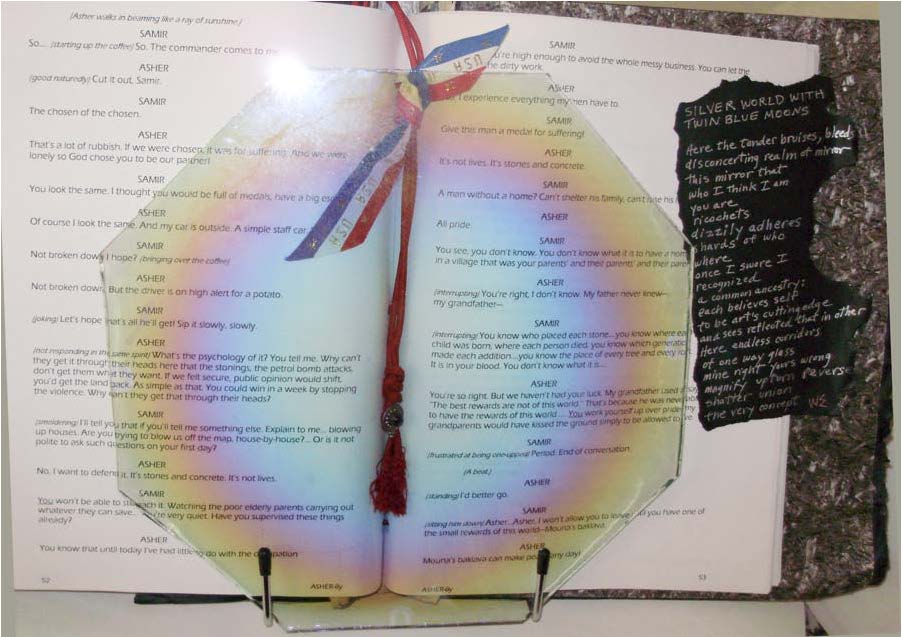 (Asher walks in beaming like a ray of sunshine.)
SAMIR
So.... (starting up the coffee) So. The commander comes to me
ASHER
(good naturedly) Cut it out, Samir.
SAMIR
The chosen of the chosen.
ASHER
That's a lot of rubbish. If we were chosen, it was for suffering. And we were
lonely so God chose you to be our partner!
SAMIR
You look the same. I thought you would be full of medals, have a big es
ASHER
Of course I look the same. And my car is outside. A simple staff car.
SAMIR
Not broken down I hope? (bringing over the coffee)
ASHER
Not broken down. But the driver is on high alert for a potato.
SAMIR
(joking) Let's hope that's all he'll get! Sip it slowly, slowly.
ASHER
(not responding in the same spirit) What's the psychology of it? You tell me. Why can't
they get it through their heads here that the stonings, the petrol bomb attacks,
don't get them what they want. If we felt secure, public opinion would shift,
you'd get the land back. As simple as that. You could win in a week by stopping
the violence. Why can't they get that through their heads?
SAMIR
(smoldering) I'll tell you that if you'll tell me something else. Explain to me... blowing
up houses. Are you trying to blow us off the map, house-by-house?... Or is it not
polite to ask such questions on your first day?
ASHER
No. I want to defend it. It's stones and concrete. It's not lives.
SAMIR
You won't be able to stomach it. Watching the poor elderly parents carrying out
whatever they can save... They're very quiet. Have you supervised these things
already?
ASHER
You know that until today I've had little to do with the occupation
52
ASHER-ily
SAMIR
you're high enough to avoid the whole messy business. You can let the
the dirty work.
ASHER
I experience everything my men have to.
SAMIR
Give this man a medal for suffering!
ASHER
It's not lives. It's stones and concrete.
SAMIR
A man without a home? Can't shelter his family, can't raise his
ASHER
All pride.
SAMIR
You see, you don't know. You don't know what it is to have a home
in a village that was your parents' and their parents' and their parents'
ASHER
(interrupting) You're right, I don't know. My father never knew—
my grandfather—
SAMIR
(interrupting) You know who placed each stone...you know where each
child was born, where each person died, you know which generation
made each addition...you know the place of every tree and every rock
It is in your blood. You don't know what it is...
ASHER
You're so right. But we haven't had your luck. My grandfather used to say
"The best rewards are not of this world." That's because he was never
to have the rewards of this world.... You work yourself up over pride, my
grandparents would have kissed the ground simply to be allowed to live.
SAMIR
(frustrated at being one-upped) Period. End of conversation.
(A beat.)
ASHER
(standing) I'd better go.
SAMIR
(sitting him down) Asher. Asher, I won't allow you to leave till you have one of
the small rewards of this world—Mouna's baklava.
ASHER
Mouna's baklava can make peace any day!
53
ASHER-ily
USA
USA
USA
SILVER WORLD WITH
TWIN BLUE MOONS
Here the tander bruises, bleeds
disconcerting realm of mirror
this mirror that
who I think I am
you are
ricochets
dizzily adheres
shards of who
where
once I swore I
recognized
a common ancestry:
each believes self
to be art's cutting edge
and sees reflected that in other
Here endless corridors
of one way glass
mine right yours wrong
magnify upturn reverse
shatter union
the very concept WE